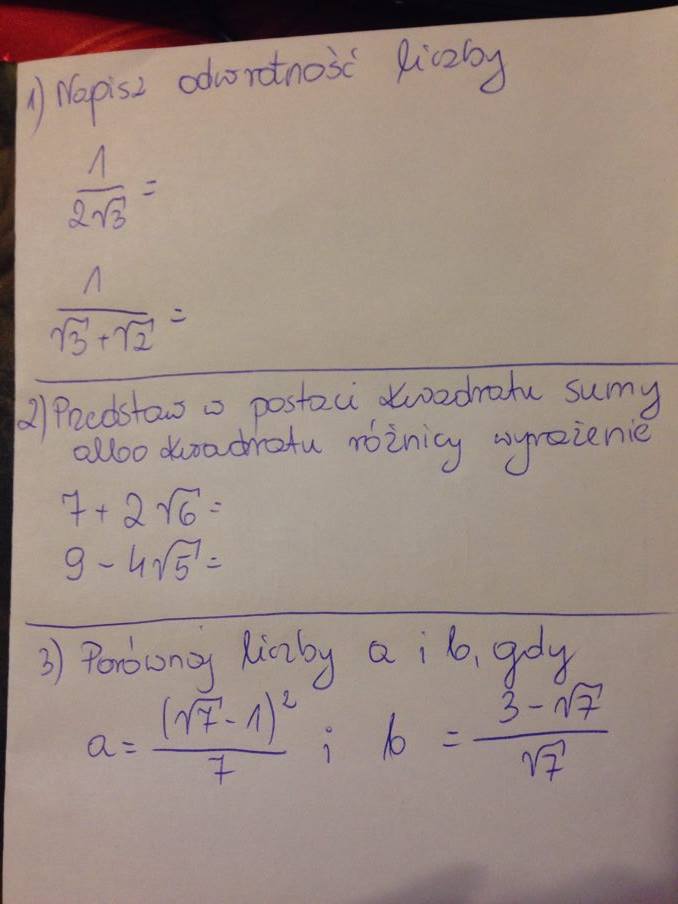 1) Napisz odwrotność liczby
1/(2√3) =
1/(√3+√2) =
2) Przedstaw w postaci kwadratu sumy
albo kwadratu różnicy wyrażenie
7+2√6=
9-4√5=
3) Porównaj liczby a i b, gdy
a = (√7-1)²/7 i b = (3-√7)/√7